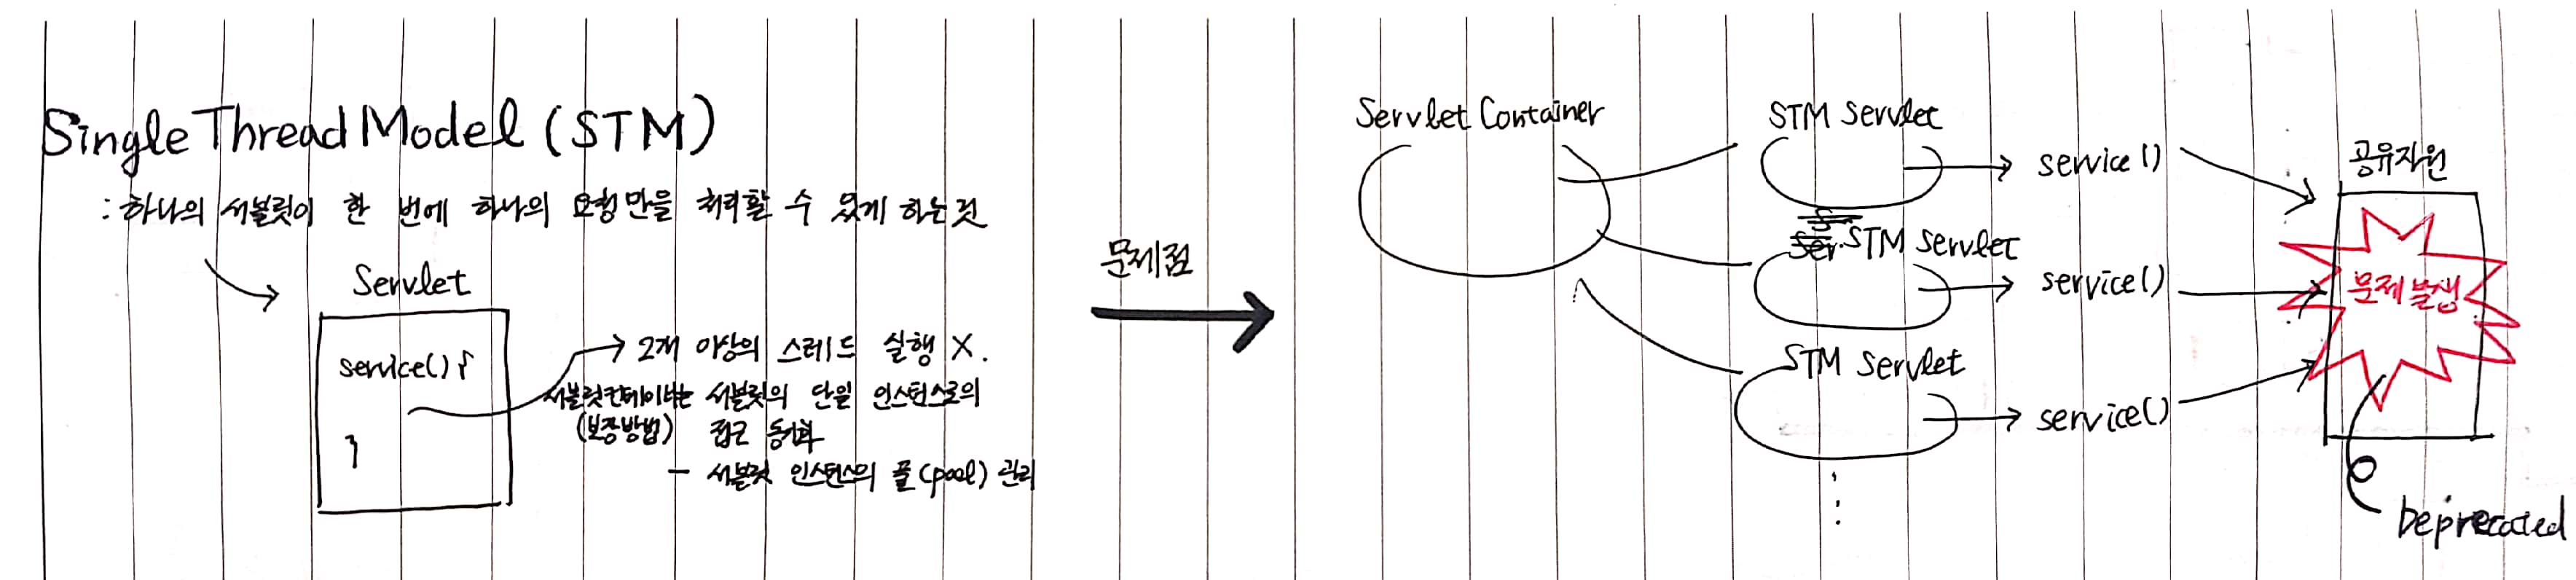 SingleThreadModel (STM)
: 하나의 서블릿이 한 번에 하나의 요청만을 처리할 수 있게 하는것
Servlet
service() {
}
2개 이상의 스레드 실행 X.
서블릿컨테이너는 서블릿의 단일 인스턴스로의
(보장방법) 접근 동기화
- 서블릿 인스턴스의 풀(pool) 관리
문제점
Servlet Container
STM Servlet
service()
STM Servlet
service()
STM Servlet
service()
공유자원
문제 발생
Deprecated